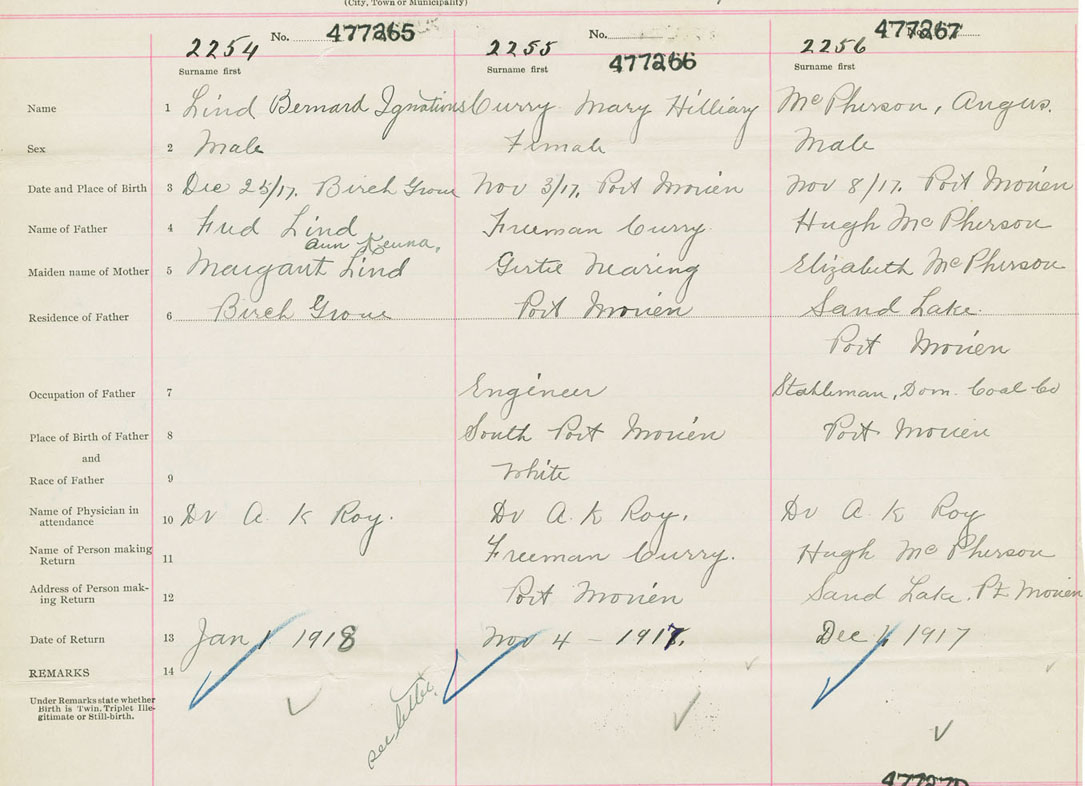 (City, Town or Municipality)
2254 No. 477265 2255 No. 477266 2256 477267
Surname first Surname first Surname first
Name 1 Lind Bernard Ignatious Curry Mary Hilliary McPherson, Angus.
Sex 2 Male Female Male
Date and Place of Birth 3 Dec 25/17, Birch Grove Nov 3/17, Port Morien Nov 8/17, Port Morien
Name of Father 4 Fred Lind Freeman Curry Hugh McPherson
ann
Maiden name of Mother 5 Margaret Lind Gertie Nearing Elizabeth McPherson
Residence of Father 6 Birch Grove Port Morien Sand Lake
Port Morien
Occupation of Father 7 Engineer Stableman, Dom. Coal Co
Place of Birth of Father 8 South Port Morien Port Morien
and
Race of Father 9 White
Name of Physician in attendance 10 Dr A. K Roy. Dr A. K Roy. Dr A. K Roy
Name of Person making Return 11 Freeman Curry. Hugh McPherson
Address of Person mak-ing Return 12 Port Morien Sand Lake. Pt Morien
Date of Return 13 Jan 1 1918 Nov 4 - 1917. Dec 4 1917
REMARKS 14
Under Remarks state whether
Birth is Twin, Triplet Ille-
gitimate or Still-birth.
see letter
477270